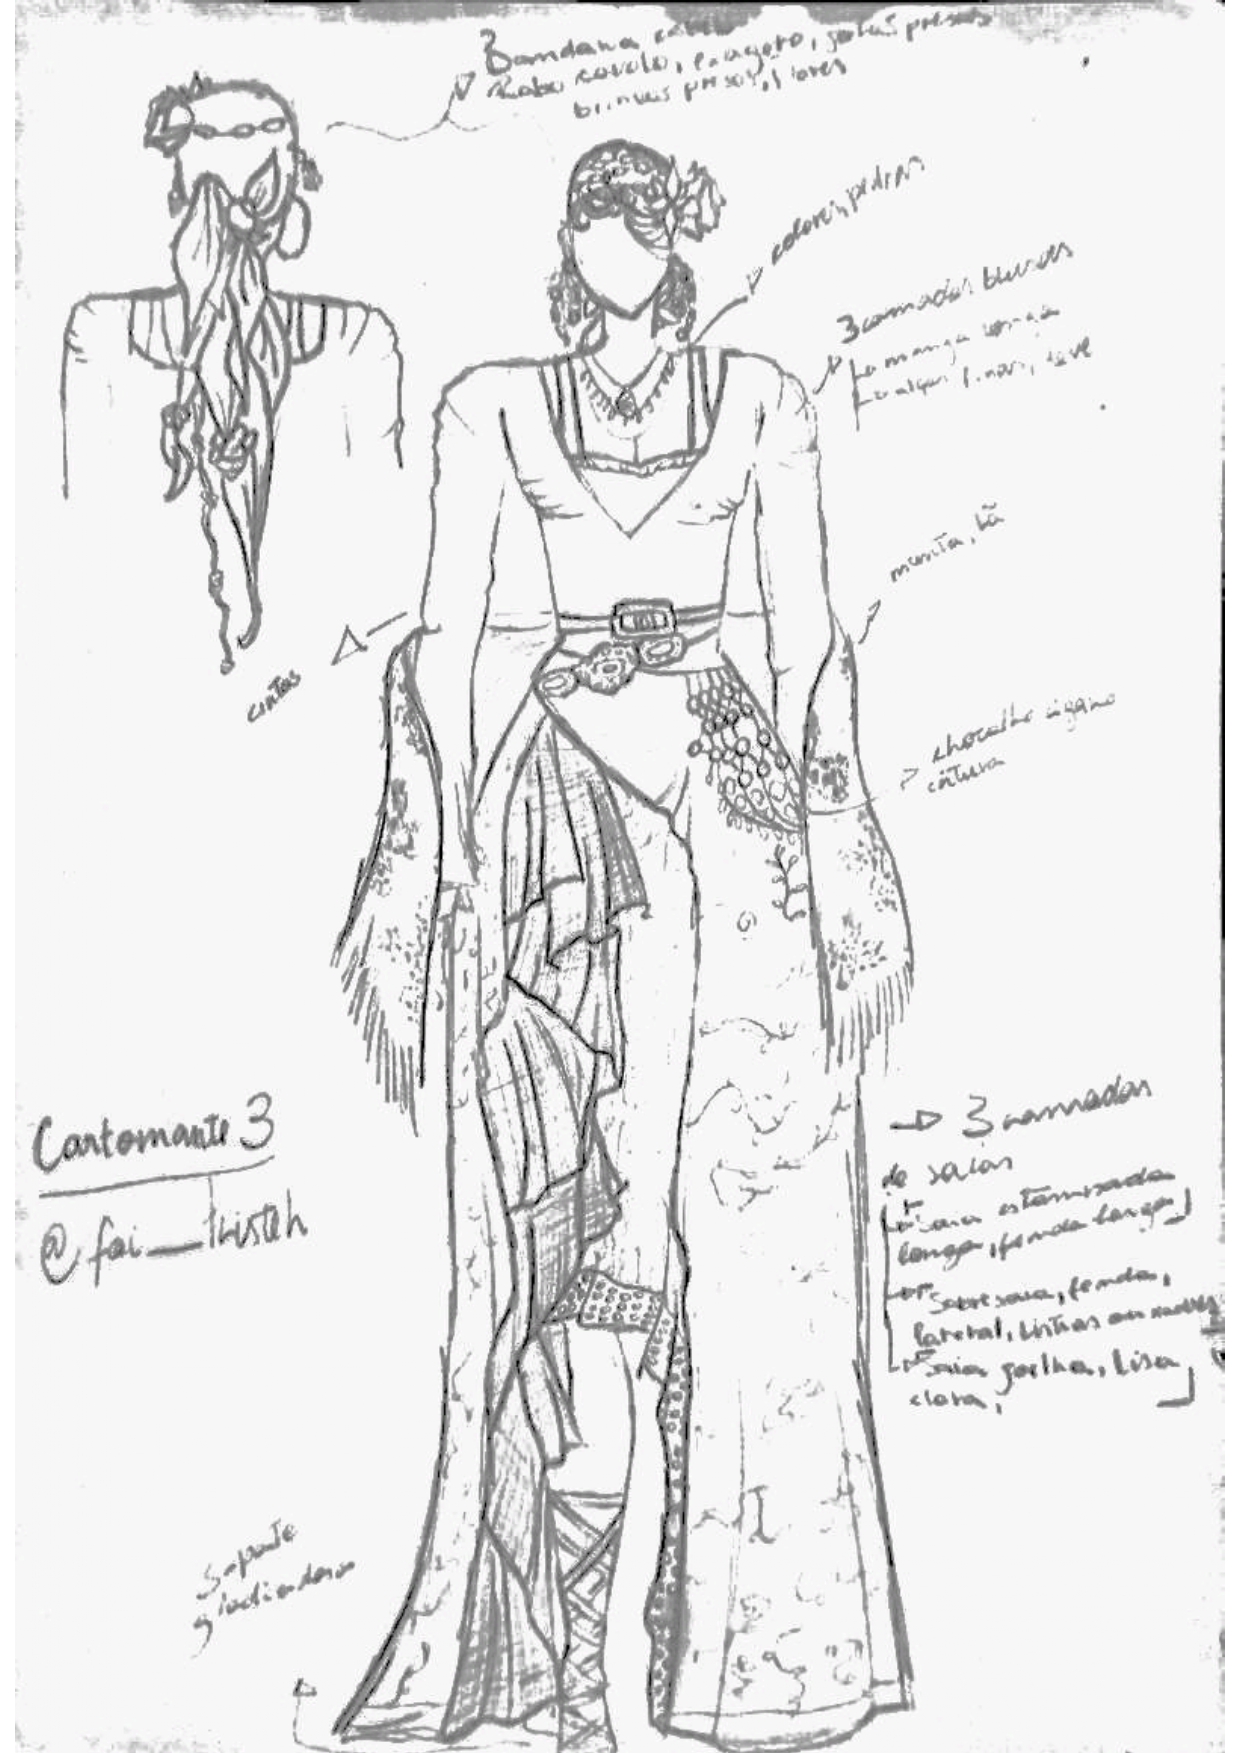 Bandana
Rabo cavalo, presos
brincos presos, flores
colares, pedras
3 camadas blusas
manga longa
alças finas, leve
manta, lã
cintos
chocalho cigano
cintura
Cartomante 3
@fai_kisteh
3 camadas
de saias
Saia estampada
longa, fenda longa
Sobresaia, fenda,
lateral, listras ou xadrez
Saia joelho, lisa,
clara,
Sapato
gladiadora